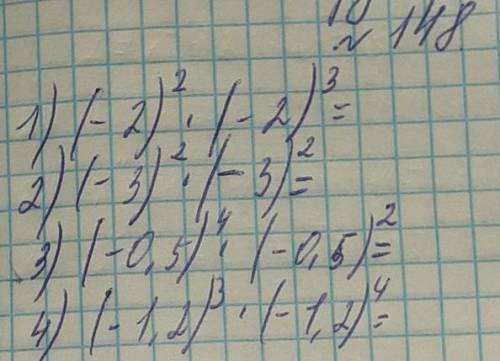 № 148
1) (-2)² · (-2)³ =
2) (-3)² · (-3)² =
3) (-0,5)⁴ · (-0,5)² =
4) (-1,2)³ · (-1,2)⁴ =